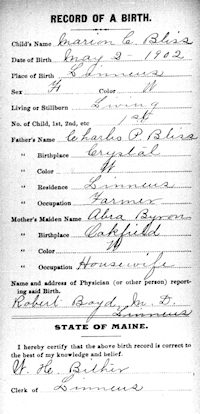 RECORD OF A BIRTH.
Child's Name Marion C. Bliss
Date of Birth May 2 - 1902
Place of Birth Linneus
Sex F Color W
Living or Stillborn Living
No. of Child, 1st, 2nd, etc 1st
Father's Name Charles P. Bliss
" Birthplace Crystal
" Color W
" Residence Linneus
" Occupation Farmer
Mother's Maiden Name Abra Byron
" Birthplace Oakfield
" Color W
" Occupation Housewife
Name and address of Physician (or other person) report-
ing said Birth,
Robert Boyd, M. D.
Linneus
STATE OF MAINE.
I hereby certify that the above birth record is correct to
the best of my knowledge and belief.
W. H. Bither
Clerk of Linneus